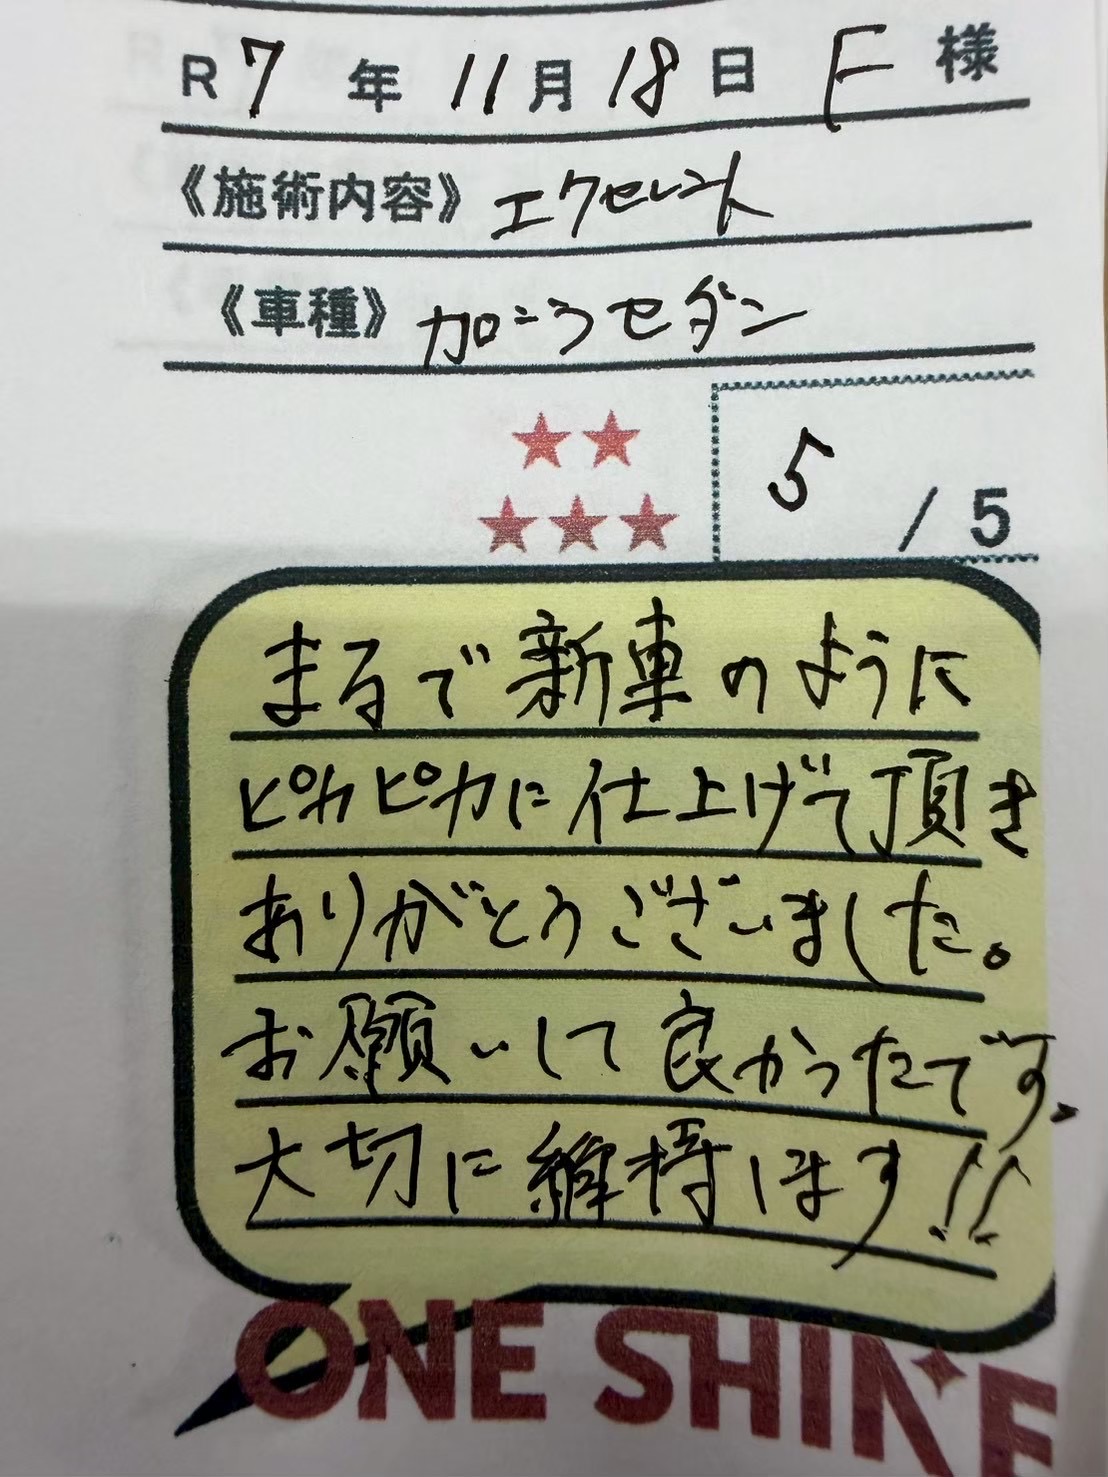 R7年 11月18日 F様
《施術内容》エクセレント
《車種》カローラセダン
★★
★★★
5/5
まるで新車のように
ピカピカに仕上げて頂き
ありがとうございました。
お願いして良かったです。
大切に維持します!!
ONE SHINE